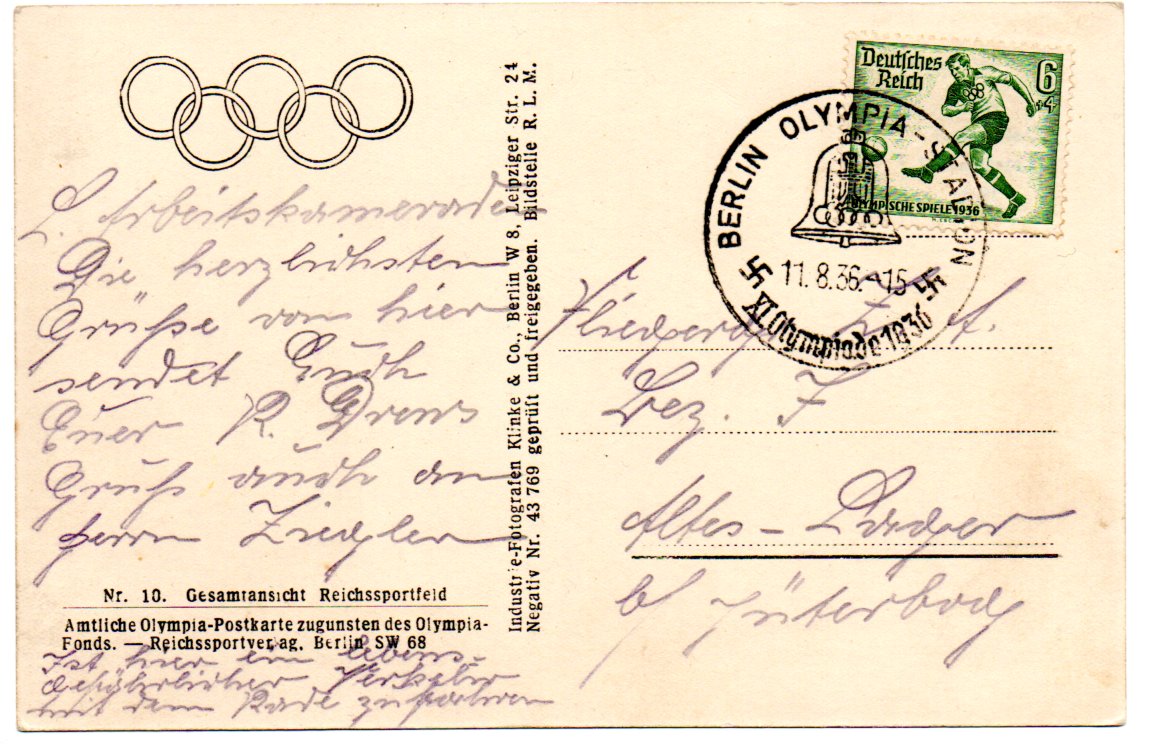 L. Arbeitskameraden
Die herzlichsten
Grüße von hier
sendet Euch
Euer R. Drews
Gruß auch an
Herrn Ziegler
Nr. 10. Gesamtansicht Reichssportfeld
Amtliche Olympia-Postkarte zugunsten des Olympia-
Fonds. — Reichssportverlag, Berlin SW 68
Ist hier ein lebens-
gefährlicher Verkehr
mit dem Rade zu fahren
Industrie-Fotografen Klinke & Co., Berlin W 8, Leipziger Str. 24
Negativ Nr. 43 769 geprüft und freigegeben. Bildstelle R. L. M.
Deutsches
Reich
6
+4
OLYMPISCHE SPIELE 1936
BERLIN OLYMPIA-STADION
11.8.36.-15
XI. Olympiade 1936
Bez. F
Altes-Lager
b/ Jüterbog